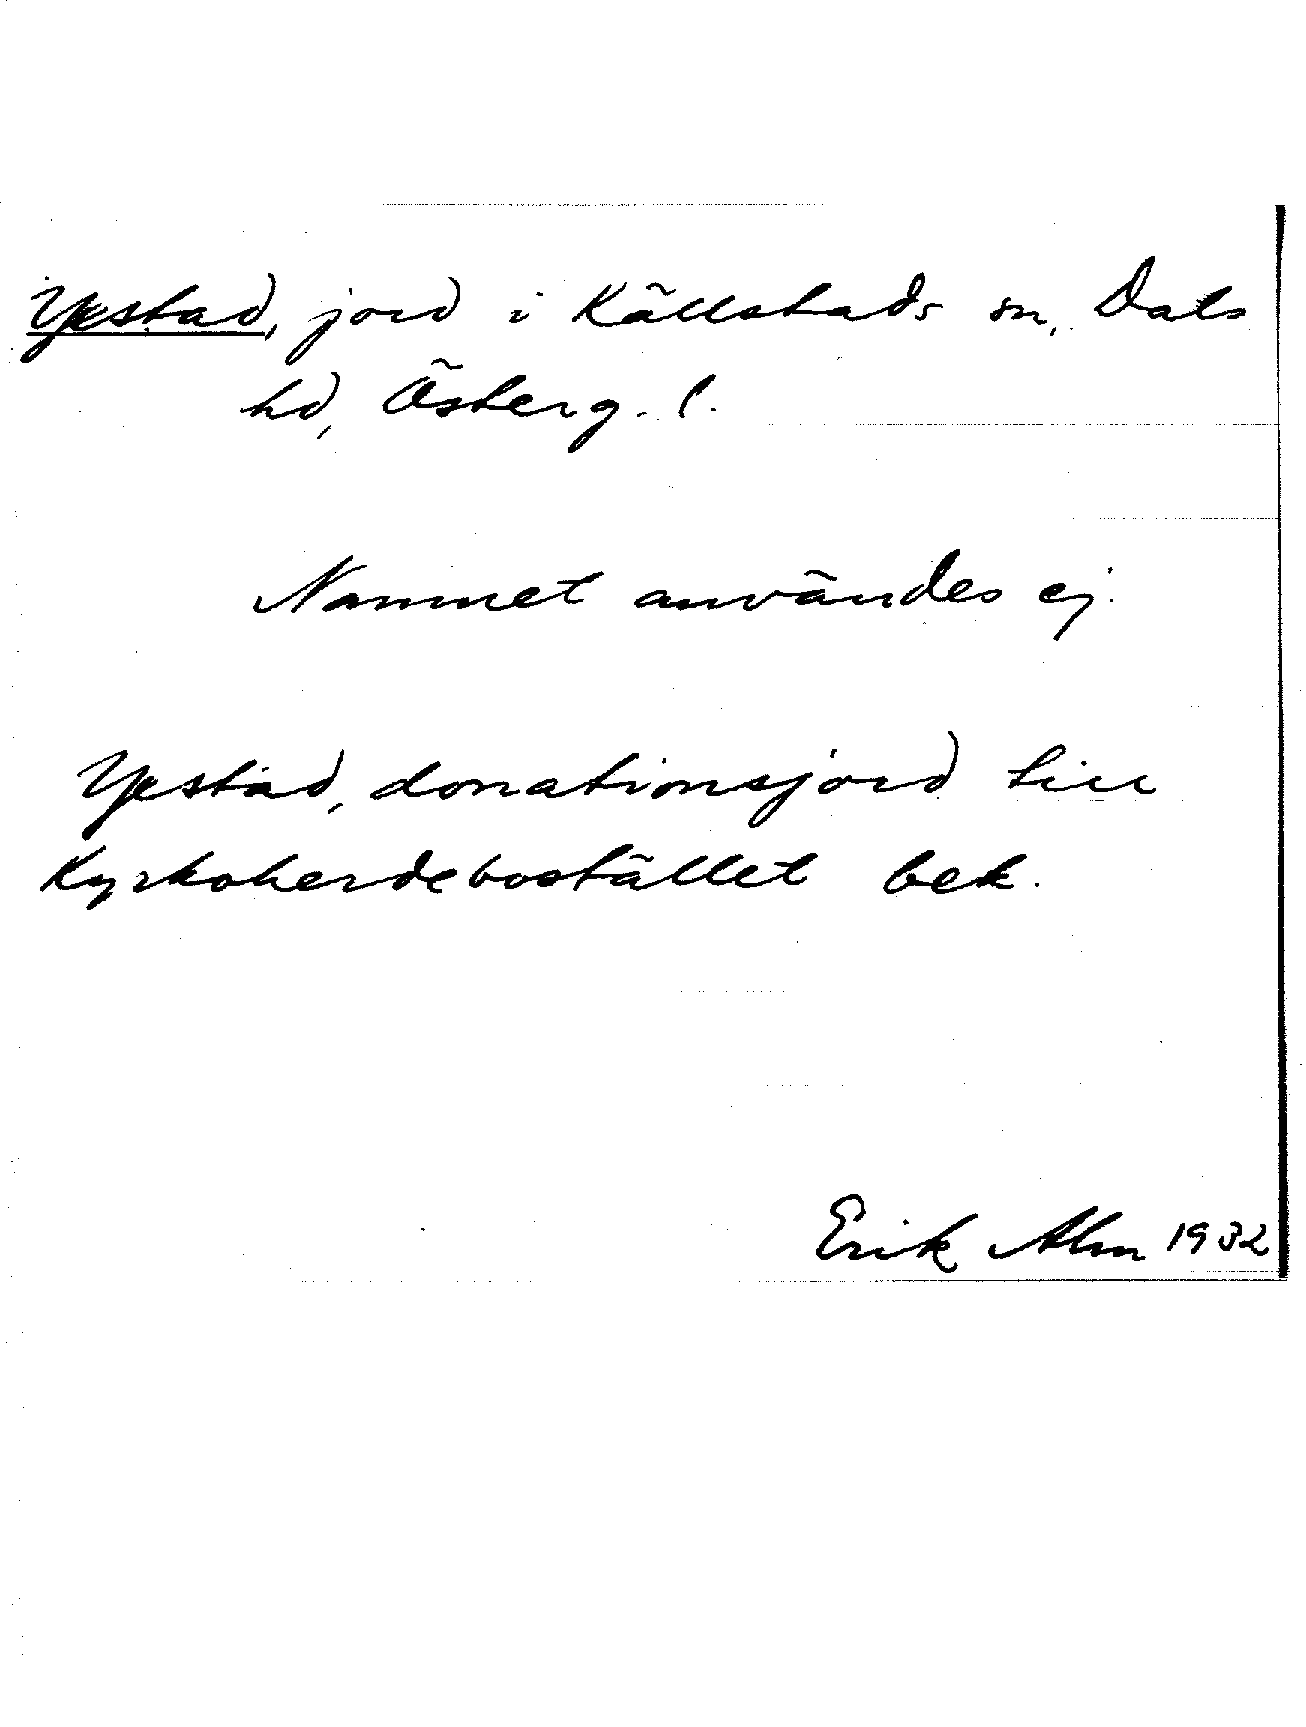 Ypestad, jord i Källstads sn, Dals
hd, Österg. l.
Namnet användes ej.
Ypestad, donationsjord till
Kyrkoherdebostället bek.
Erik Alm 1932